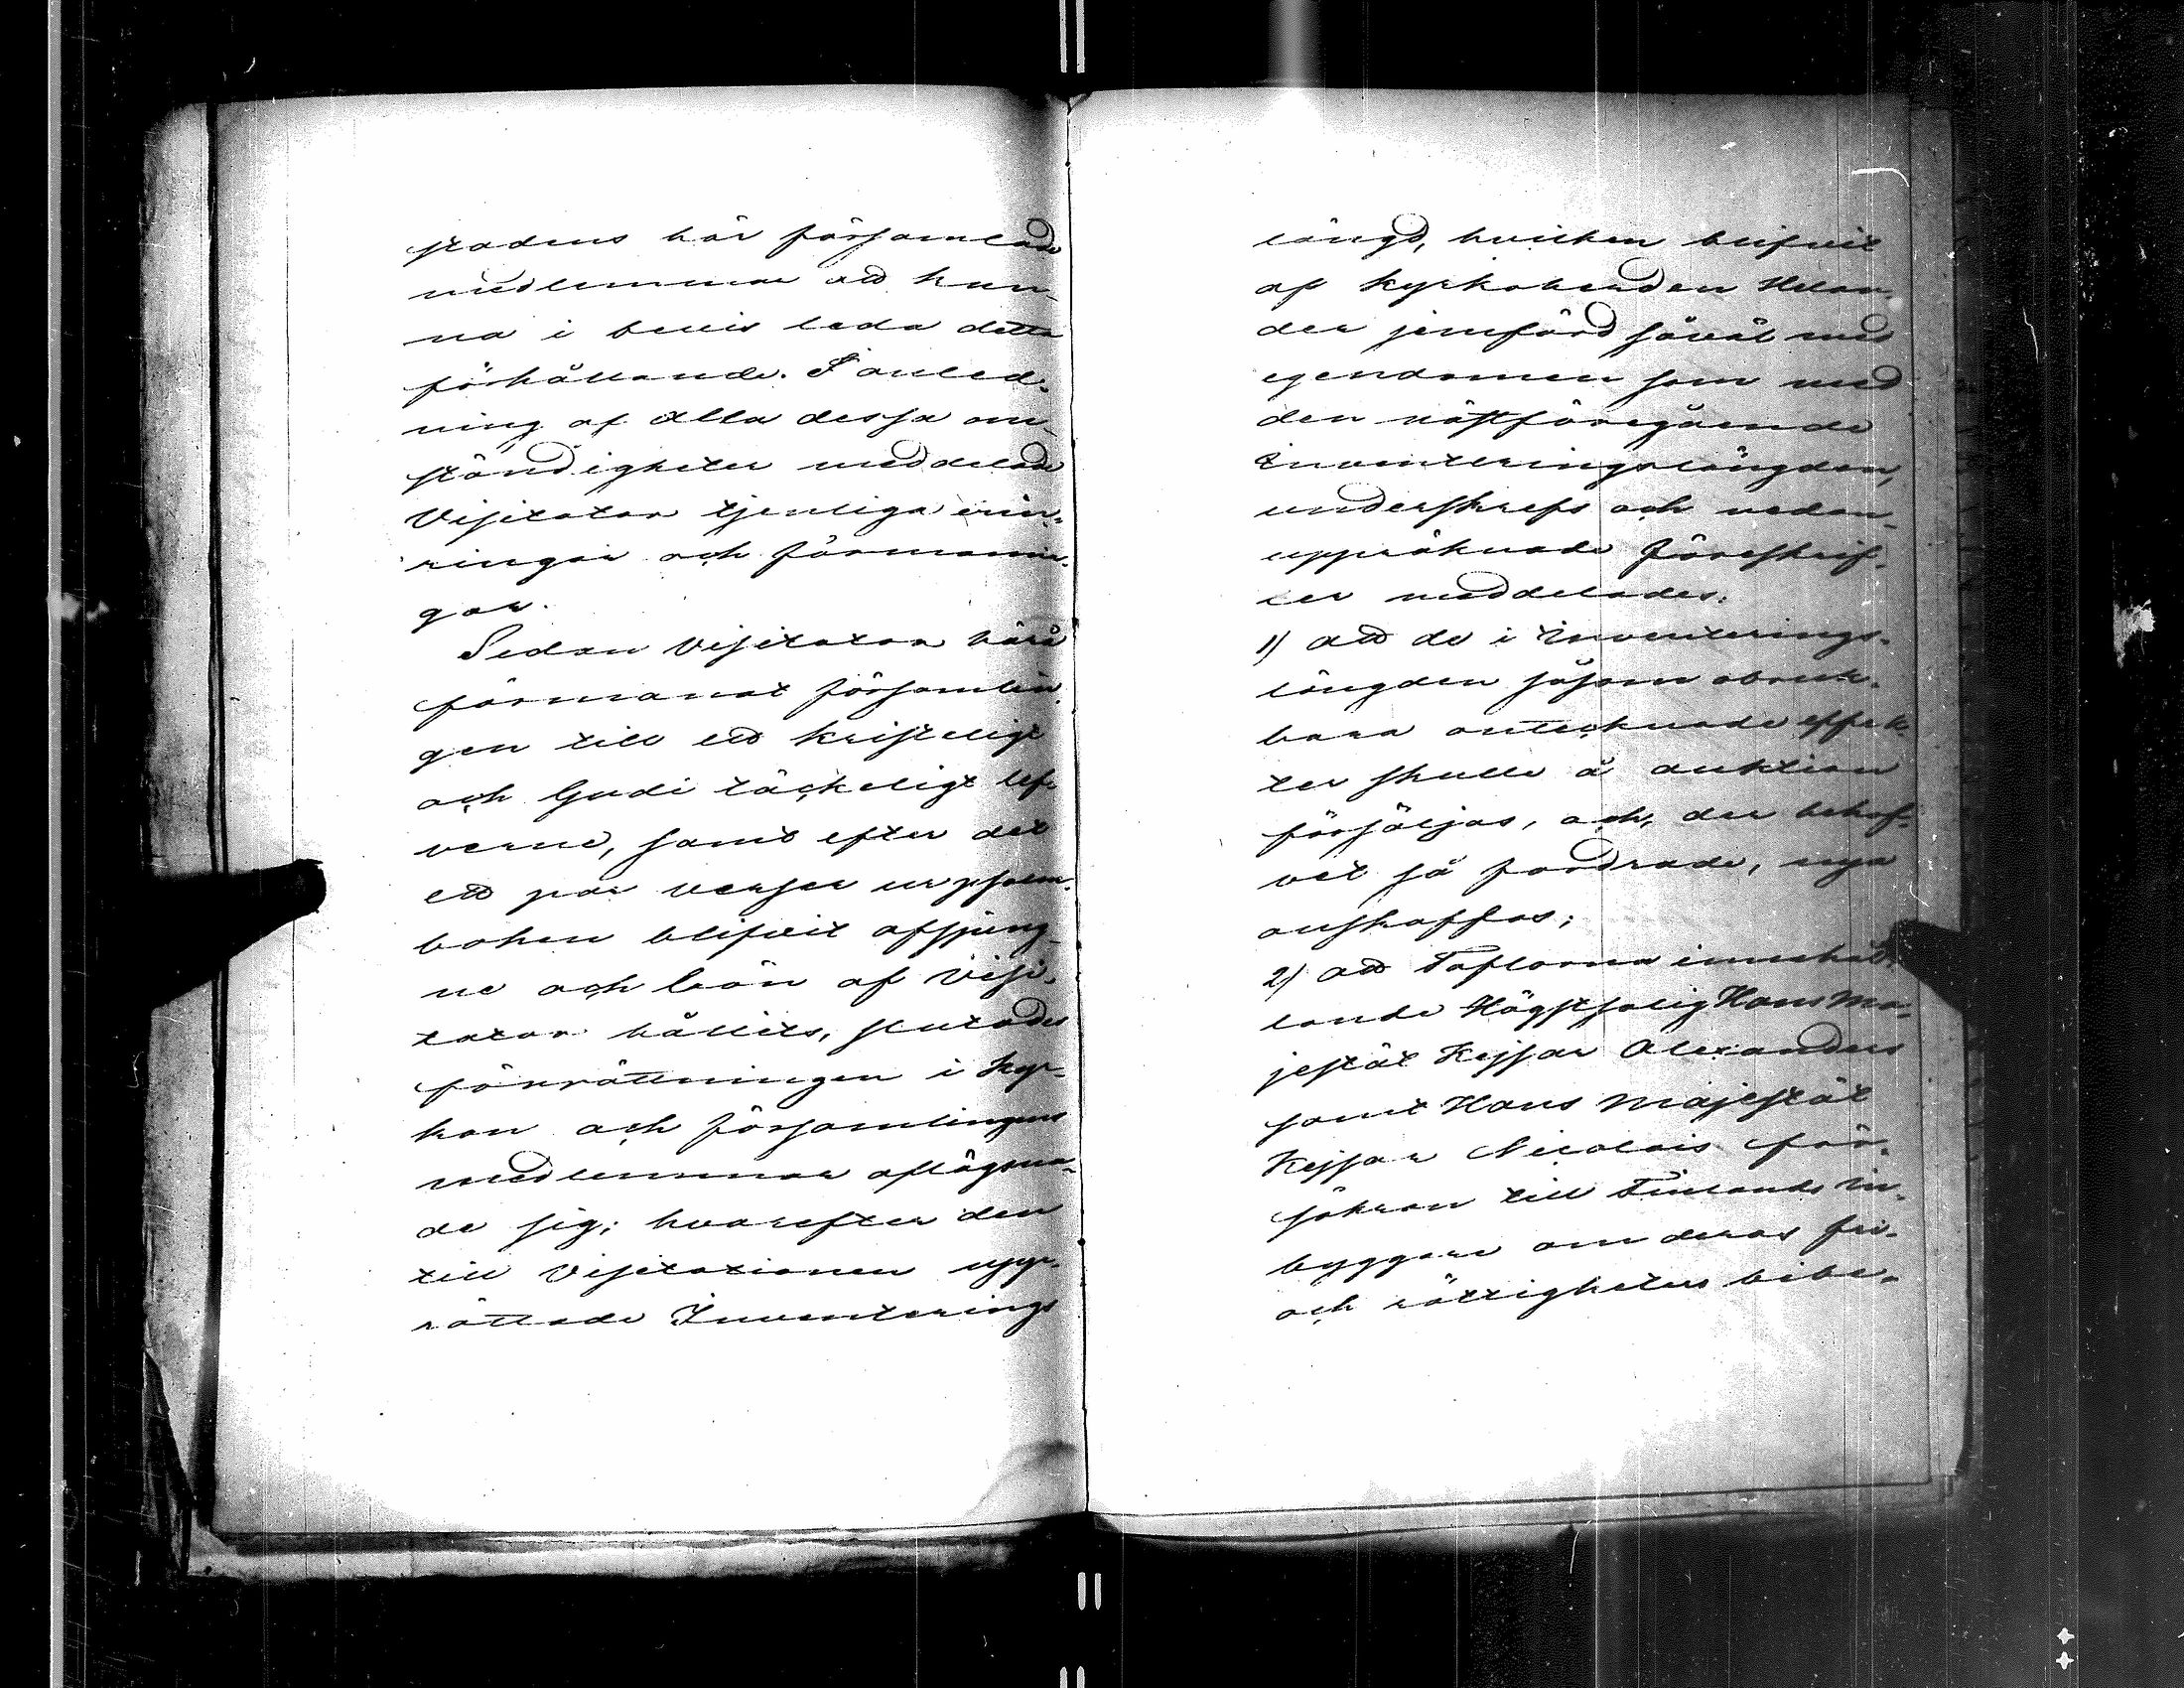 stadens här församlade
medlemmar att kun-
na i bevis leda detta
förhållande. I anled-
ning af alla dessa om-
ständigheter meddelade
Visitator tjenliga erin-
ringar och förmanin-
gar.
Sedan Visitator härå
förmanat församlin-
gen till ett kristeligt
och Gudi täckeligt lef-
verne, samt efter det
ett par verser ur psalm-
boken blifvit afsjung-
ne och bön af Visi-
tator hållits, slutades
förrättningen i kyr-
kan och församlingens
medlemmar aflägsna-
de sig; hvarefter den
till Visitationen upp-
rättade Inventerings
längd, hvilken blifvit
af Kyrkoherden Helan-
der jemförd såväl med
egendomen som med
den nästföregående
Inventeringslängden,
underskrefs och nedan-
uppräknade föreskrif-
ter meddelades:
1) att de i Inventerings-
längden såsom obruk-
bara antecknade effek-
ter skulle å auktion
försäljas, och, der behof-
vet så fordrade, nya
anskaffas;
2) att Taflorna innehål-
lande Högstsalig Hans Ma-
jestät Kejsar Alexanders
samt Hans Majestät
Kejsar Nicolais för-
säkran till Finlands in-
byggare om deras fri-
och rättigheters bibe-